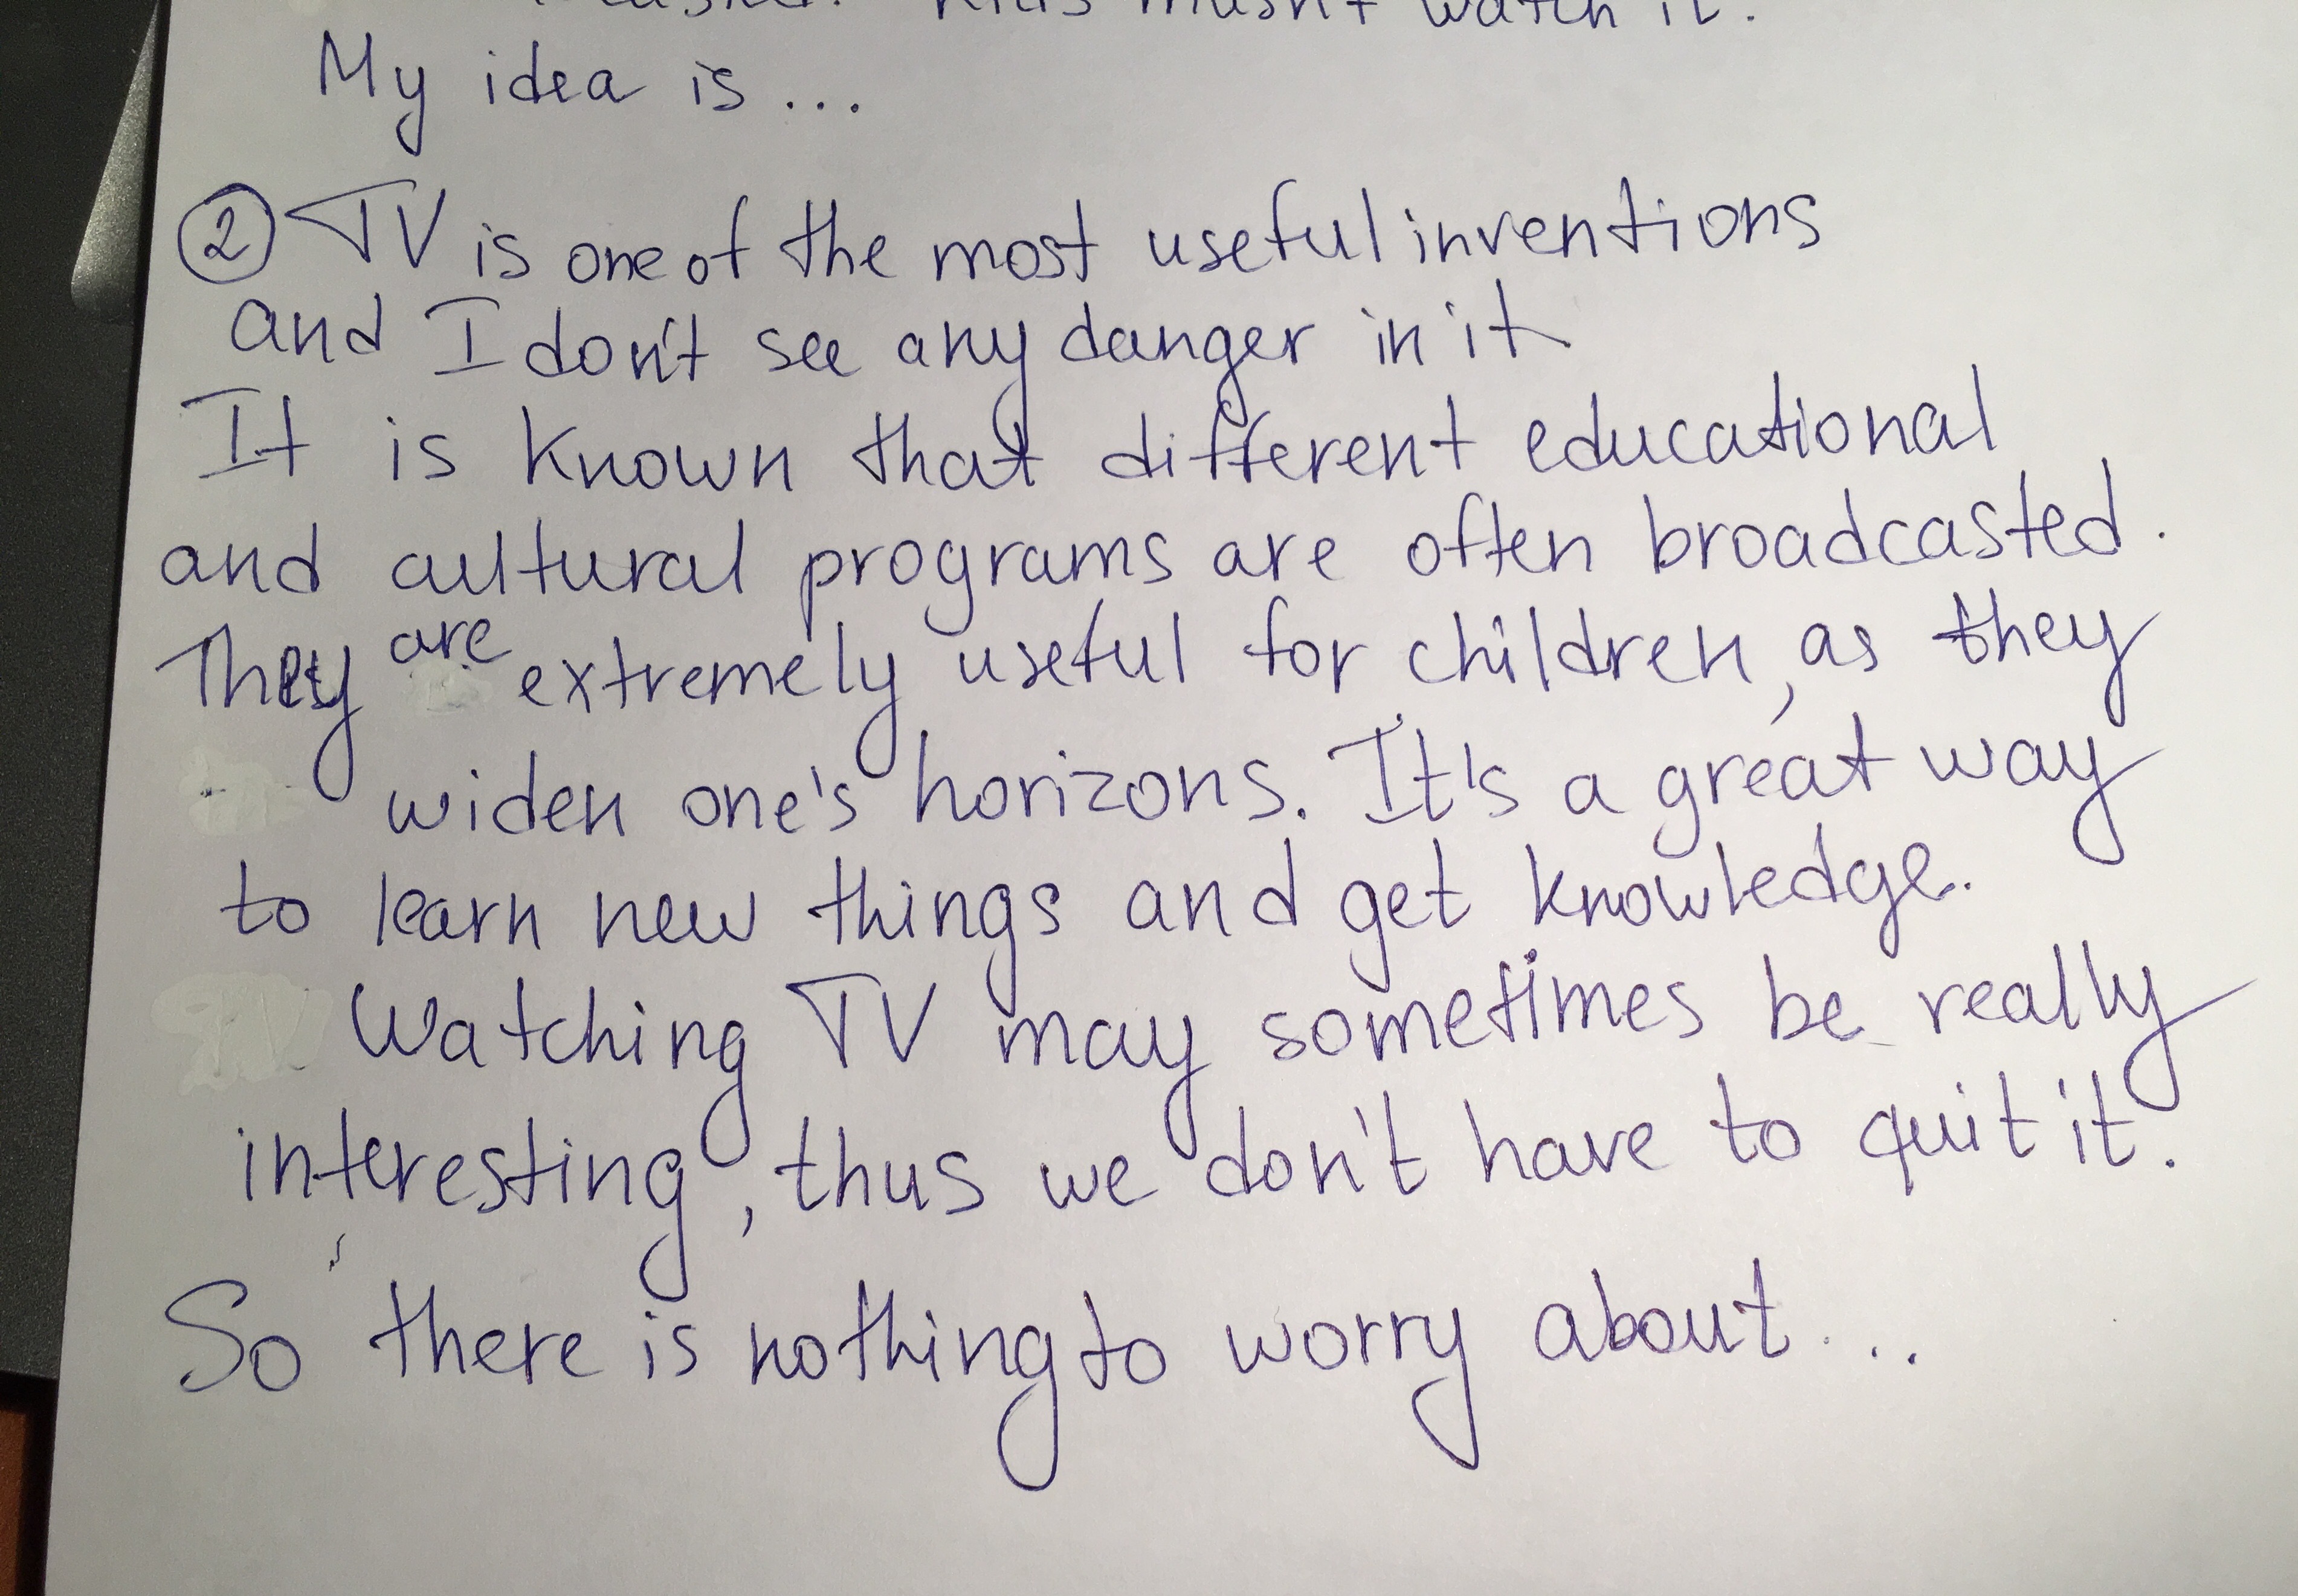 Kids mustn't watch it.
My idea is...
② TV is one of the most useful inventions
and I don't see any danger in it.
It is known that different educational
and cultural programs are often broadcasted.
They are extremely useful for children, as they
widen one's horizons. It's a great way
to learn new things and get knowledge.
Watching TV may sometimes be really
interesting, thus we don't have to quit it.
So there is nothing to worry about...